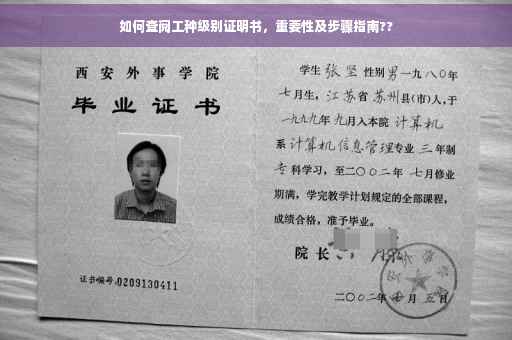 如何查阅工种级别证明书，重要性及步骤指南??
西安外事学院
毕业证书
证书编号:0209130411
学生 张坚 性别 男 一九八〇年
七月生，江苏省 苏州县(市)人,于
一九九九年 九月入本院 计算机
系 计算机信息管理专业 三 年制
专科学习，至二〇〇二年 七月修业
期满，学完教学计划规定的全部课程，
成绩合格，准予毕业。
院 长
二〇〇二年 月 五日